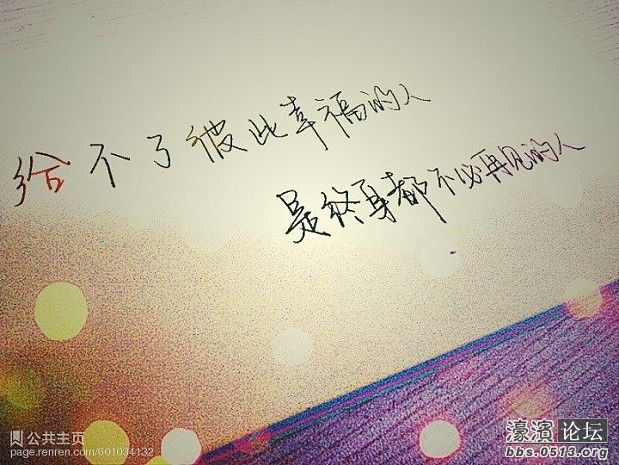 给不了彼此幸福的人
是终身都不必再见的人
公共主页
page.renren.com/601034132
濠滨论坛
bbs.0513.org